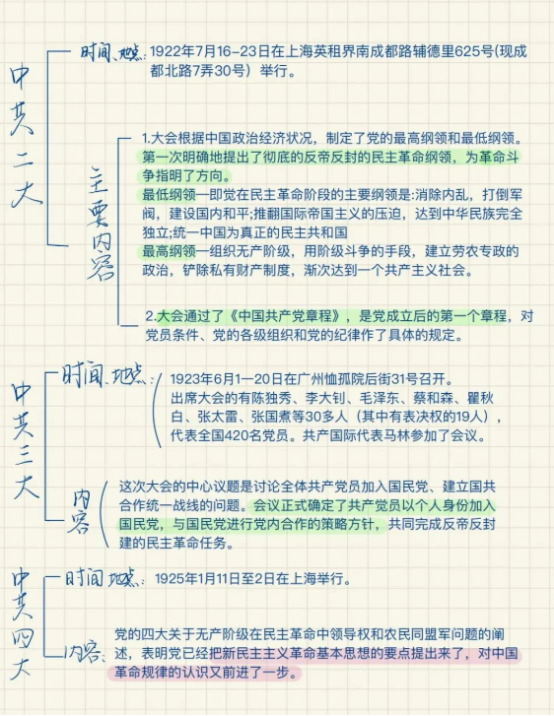 中共二大
时间、地点：1922年7月16-23日在上海英租界南成都路辅德里625号(现成
都北路7弄30号）举行。
主要内容
1.大会根据中国政治经济状况，制定了党的最高纲领和最低纲领。
第一次明确地提出了彻底的反帝反封的民主革命纲领，为革命斗
争指明了方向。
最低纲领—即党在民主革命阶段的主要纲领是:消除内乱，打倒军
阀，建设国内和平;推翻国际帝国主义的压迫，达到中华民族完全
独立;统一中国为真正的民主共和国
最高纲领—组织无产阶级，用阶级斗争的手段，建立劳农专政的
政治，铲除私有财产制度，渐次达到一个共产主义社会。
2.大会通过了《中国共产党章程》，是党成立后的第一个章程，对
党员条件、党的各级组织和党的纪律作了具体的规定。
中共三大
时间、地点：1923年6月1—20日在广州恤孤院后街31号召开。
出席大会的有陈独秀、李大钊、毛泽东、蔡和森、瞿秋
白、张太雷、张国焘等30多人（其中有表决权的19人），
代表全国420名党员。共产国际代表马林参加了会议。
内容
这次大会的中心议题是讨论全体共产党员加入国民党、建立国共
合作统一战线的问题。会议正式确定了共产党员以个人身份加入
国民党，与国民党进行党内合作的策略方针，共同完成反帝反封
建的民主革命任务。
中共四大
时间、地点：1925年1月11日至2日在上海举行。
内容：
党的四大关于无产阶级在民主革命中领导权和农民同盟军问题的阐
述，表明党已经把新民主主义革命基本思想的要点提出来了，对中国
革命规律的认识又前进了一步。